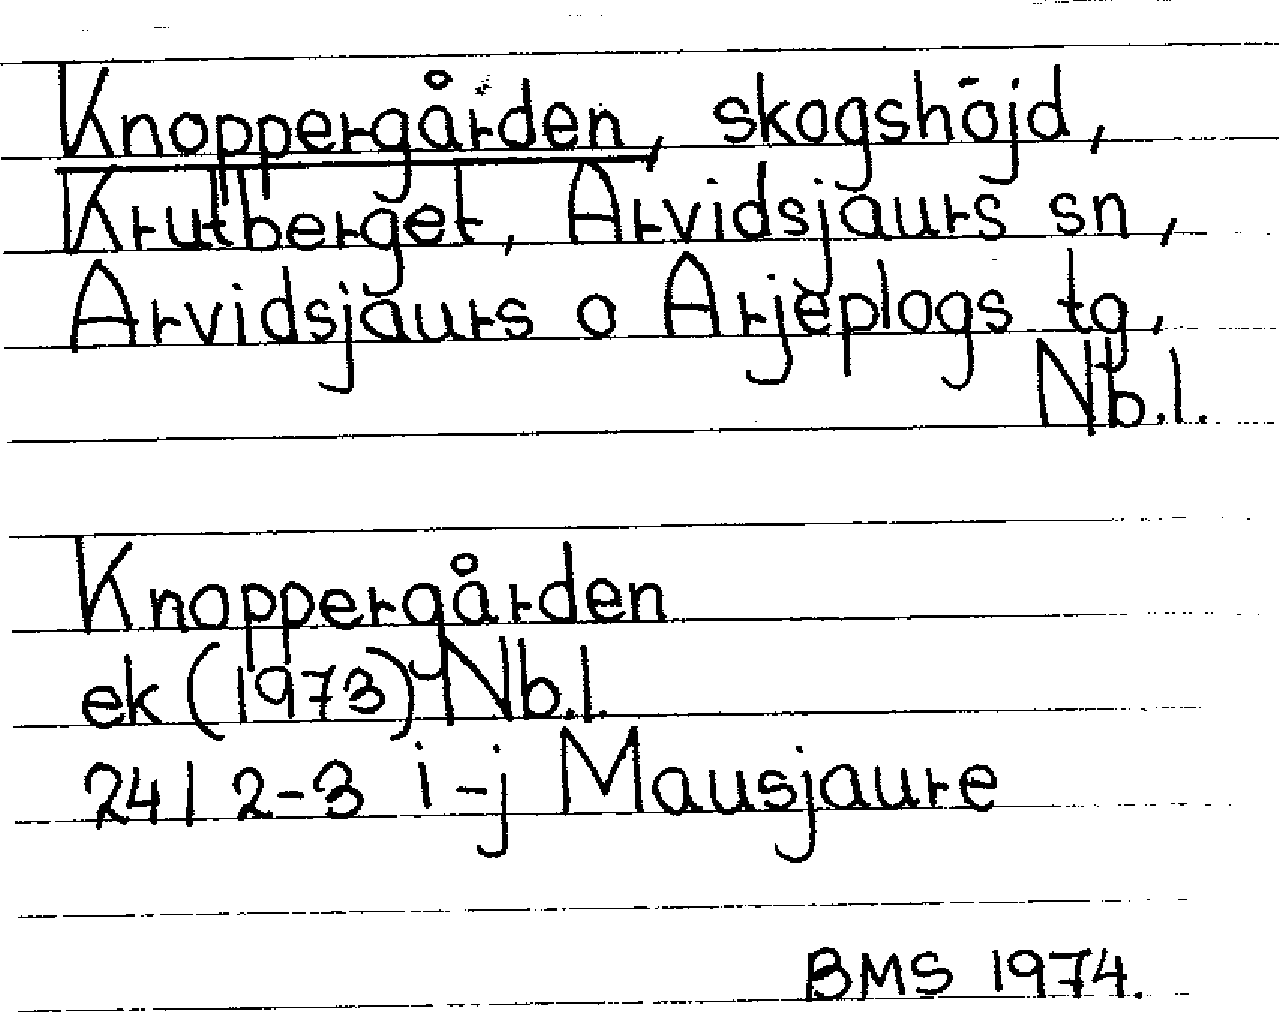 Knoppergården, skogshöjd,
Krutberget, Arvidsjaurs sn,
Arvidsjaurs o Arjeplogs tg,
Nb.l.
Knoppergården
ek (1973) Nb.l.
24I 2-3 i-j Mausjaure
BMS 1974.